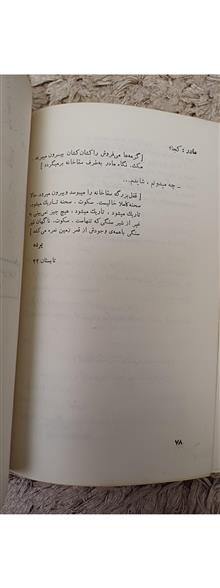 مادر : کجا؟
[ گزمه‌ها می‌فروش را کشان کشان بیرون میبرند .
مکث. نگاه مادر به‌طرف سقاخانه برمیگردد ]
ـ چه میدونم ، شایدم...
[ قفل بزرگ سقاخانه را میبوسد و بیرون میرود. حالا
صحنه کاملا خالیست. سکوت . صحنه تاریک میشود.
تاریک میشود ، تاریک میشود ، هیچ چیز نمی‌بینی به
غیر از شیر سنگی که تنهاست . سکوت. ناگهان شیر
سنگی با همه‌ی وجودش از قعر زمین نعره می‌کشد ]
پرده
تابستان ۴۴
۷۸